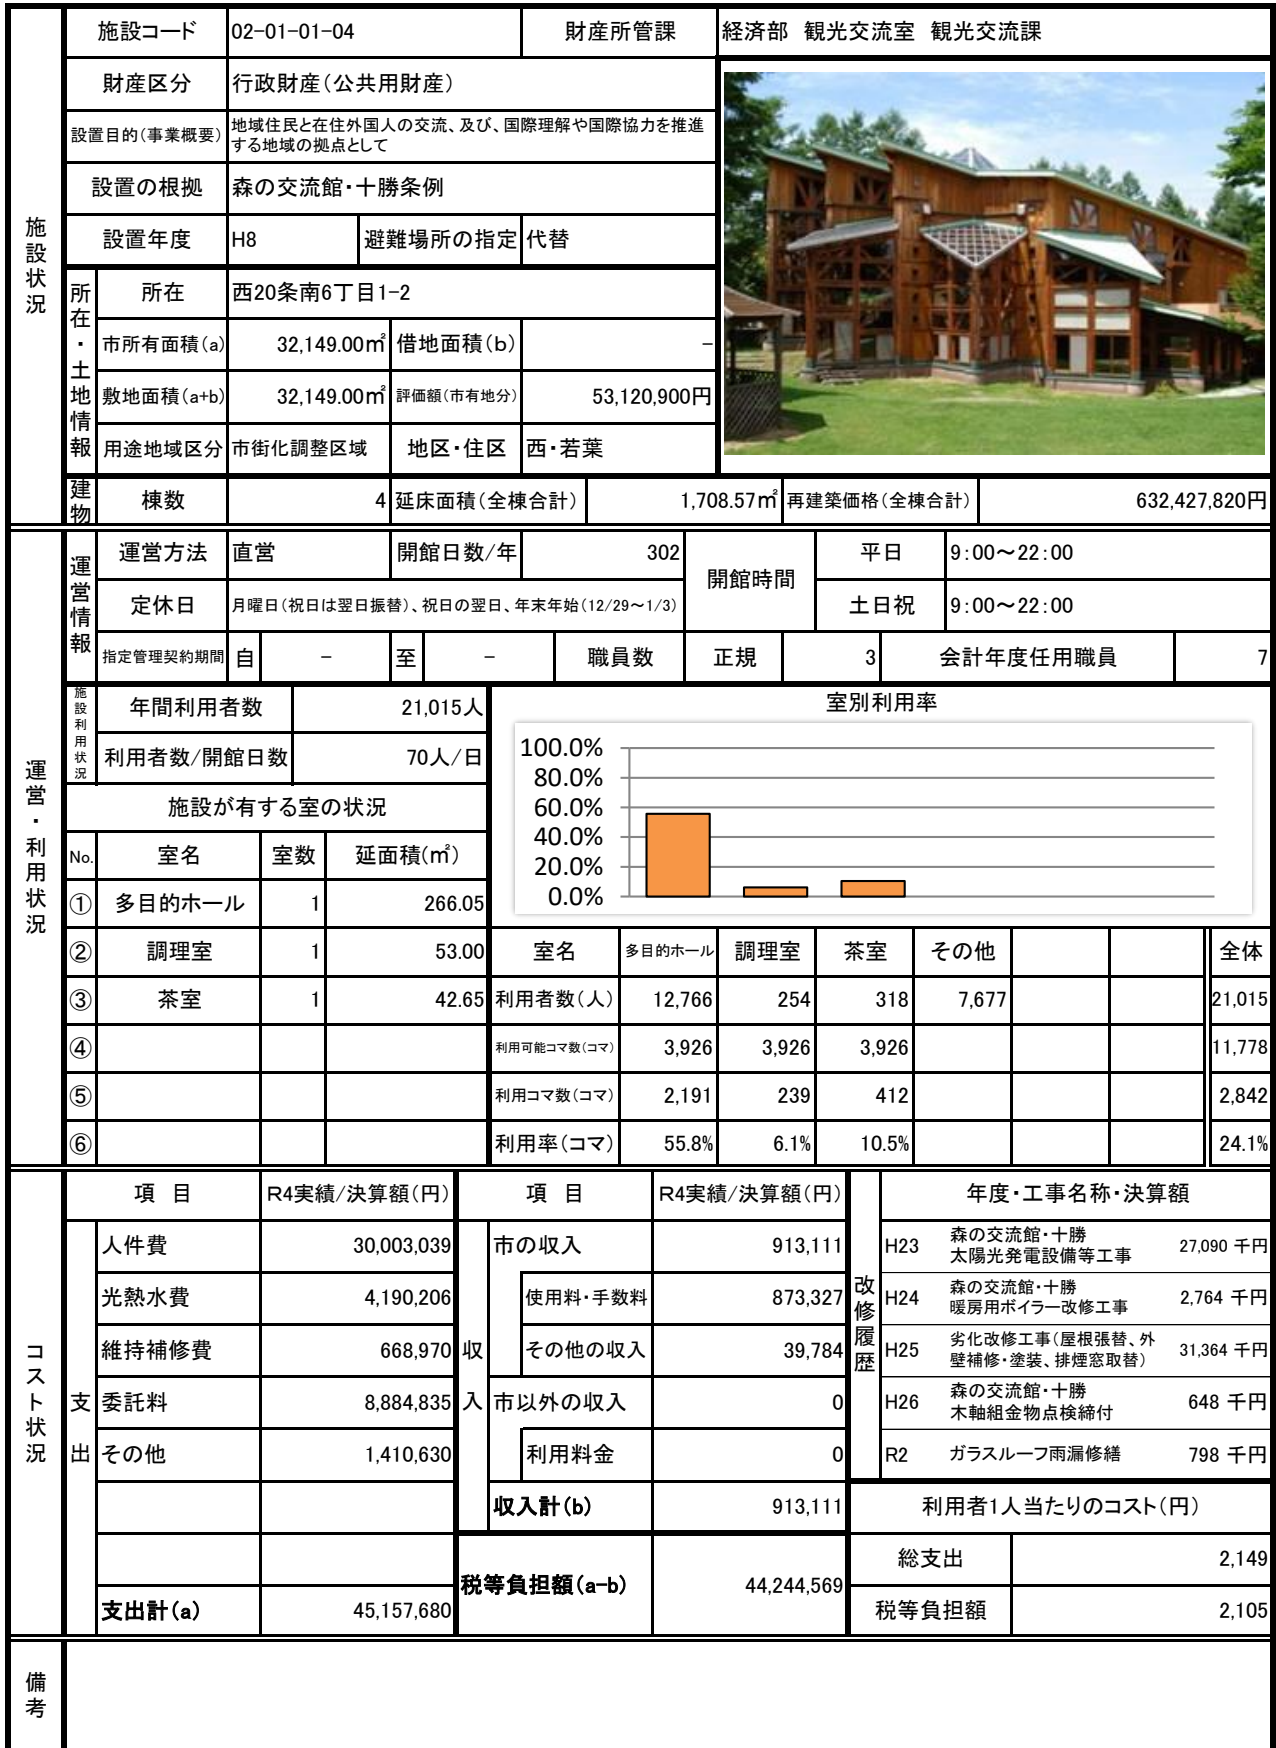 施設状況
施設コード 02-01-01-04 財産所管課 経済部 観光交流室 観光交流課
財産区分 行政財産(公共用財産)
設置目的(事業概要) 地域住民と在住外国人の交流、及び、国際理解や国際協力を推進
する地域の拠点として
設置の根拠 森の交流館・十勝条例
設置年度 H8 避難場所の指定 代替
所在・土地情報
所在 西20条南6丁目1-2
市所有面積(a) 32,149.00㎡ 借地面積(b) -
敷地面積(a+b) 32,149.00㎡ 評価額(市有地分) 53,120,900円
用途地域区分 市街化調整区域 地区・住区 西・若葉
建物 棟数 4 延床面積(全棟合計) 1,708.57㎡ 再建築価格(全棟合計) 632,427,820円
運営・利用状況
運営情報
運営方法 直営 開館日数/年 302 開館時間 平日 9:00~22:00
定休日 月曜日(祝日は翌日振替)、祝日の翌日、年末年始(12/29~1/3) 土日祝 9:00~22:00
指定管理契約期間 自 - 至 - 職員数 正規 3 会計年度任用職員 7
施設利用状況
年間利用者数 21,015人
利用者数/開館日数 70人/日
施設が有する室の状況
No. 室名 室数 延面積(㎡)
① 多目的ホール 1 266.05
② 調理室 1 53.00
③ 茶室 1 42.65
④
⑤
⑥
室別利用率
100.0%
80.0%
60.0%
40.0%
20.0%
0.0%
室名 多目的ホール 調理室 茶室 その他 全体
利用者数(人) 12,766 254 318 7,677 21,015
利用可能コマ数(コマ) 3,926 3,926 3,926 11,778
利用コマ数(コマ) 2,191 239 412 2,842
利用率(コマ) 55.8% 6.1% 10.5% 24.1%
コスト状況
項 目 R4実績/決算額(円)
支出
人件費 30,003,039
光熱水費 4,190,206
維持補修費 668,970
委託料 8,884,835
その他 1,410,630
支出計(a) 45,157,680
項 目 R4実績/決算額(円)
収入
市の収入 913,111
使用料・手数料 873,327
その他の収入 39,784
市以外の収入 0
利用料金 0
収入計(b) 913,111
税等負担額(a-b) 44,244,569
改修履歴
年度・工事名称・決算額
H23 森の交流館・十勝
太陽光発電設備等工事 27,090 千円
H24 森の交流館・十勝
暖房用ボイラー改修工事 2,764 千円
H25 劣化改修工事(屋根張替、外
壁補修・塗装、排煙窓取替) 31,364 千円
H26 森の交流館・十勝
木軸組金物点検締付 648 千円
R2 ガラスルーフ雨漏修繕 798 千円
利用者1人当たりのコスト(円)
総支出 2,149
税等負担額 2,105
備考